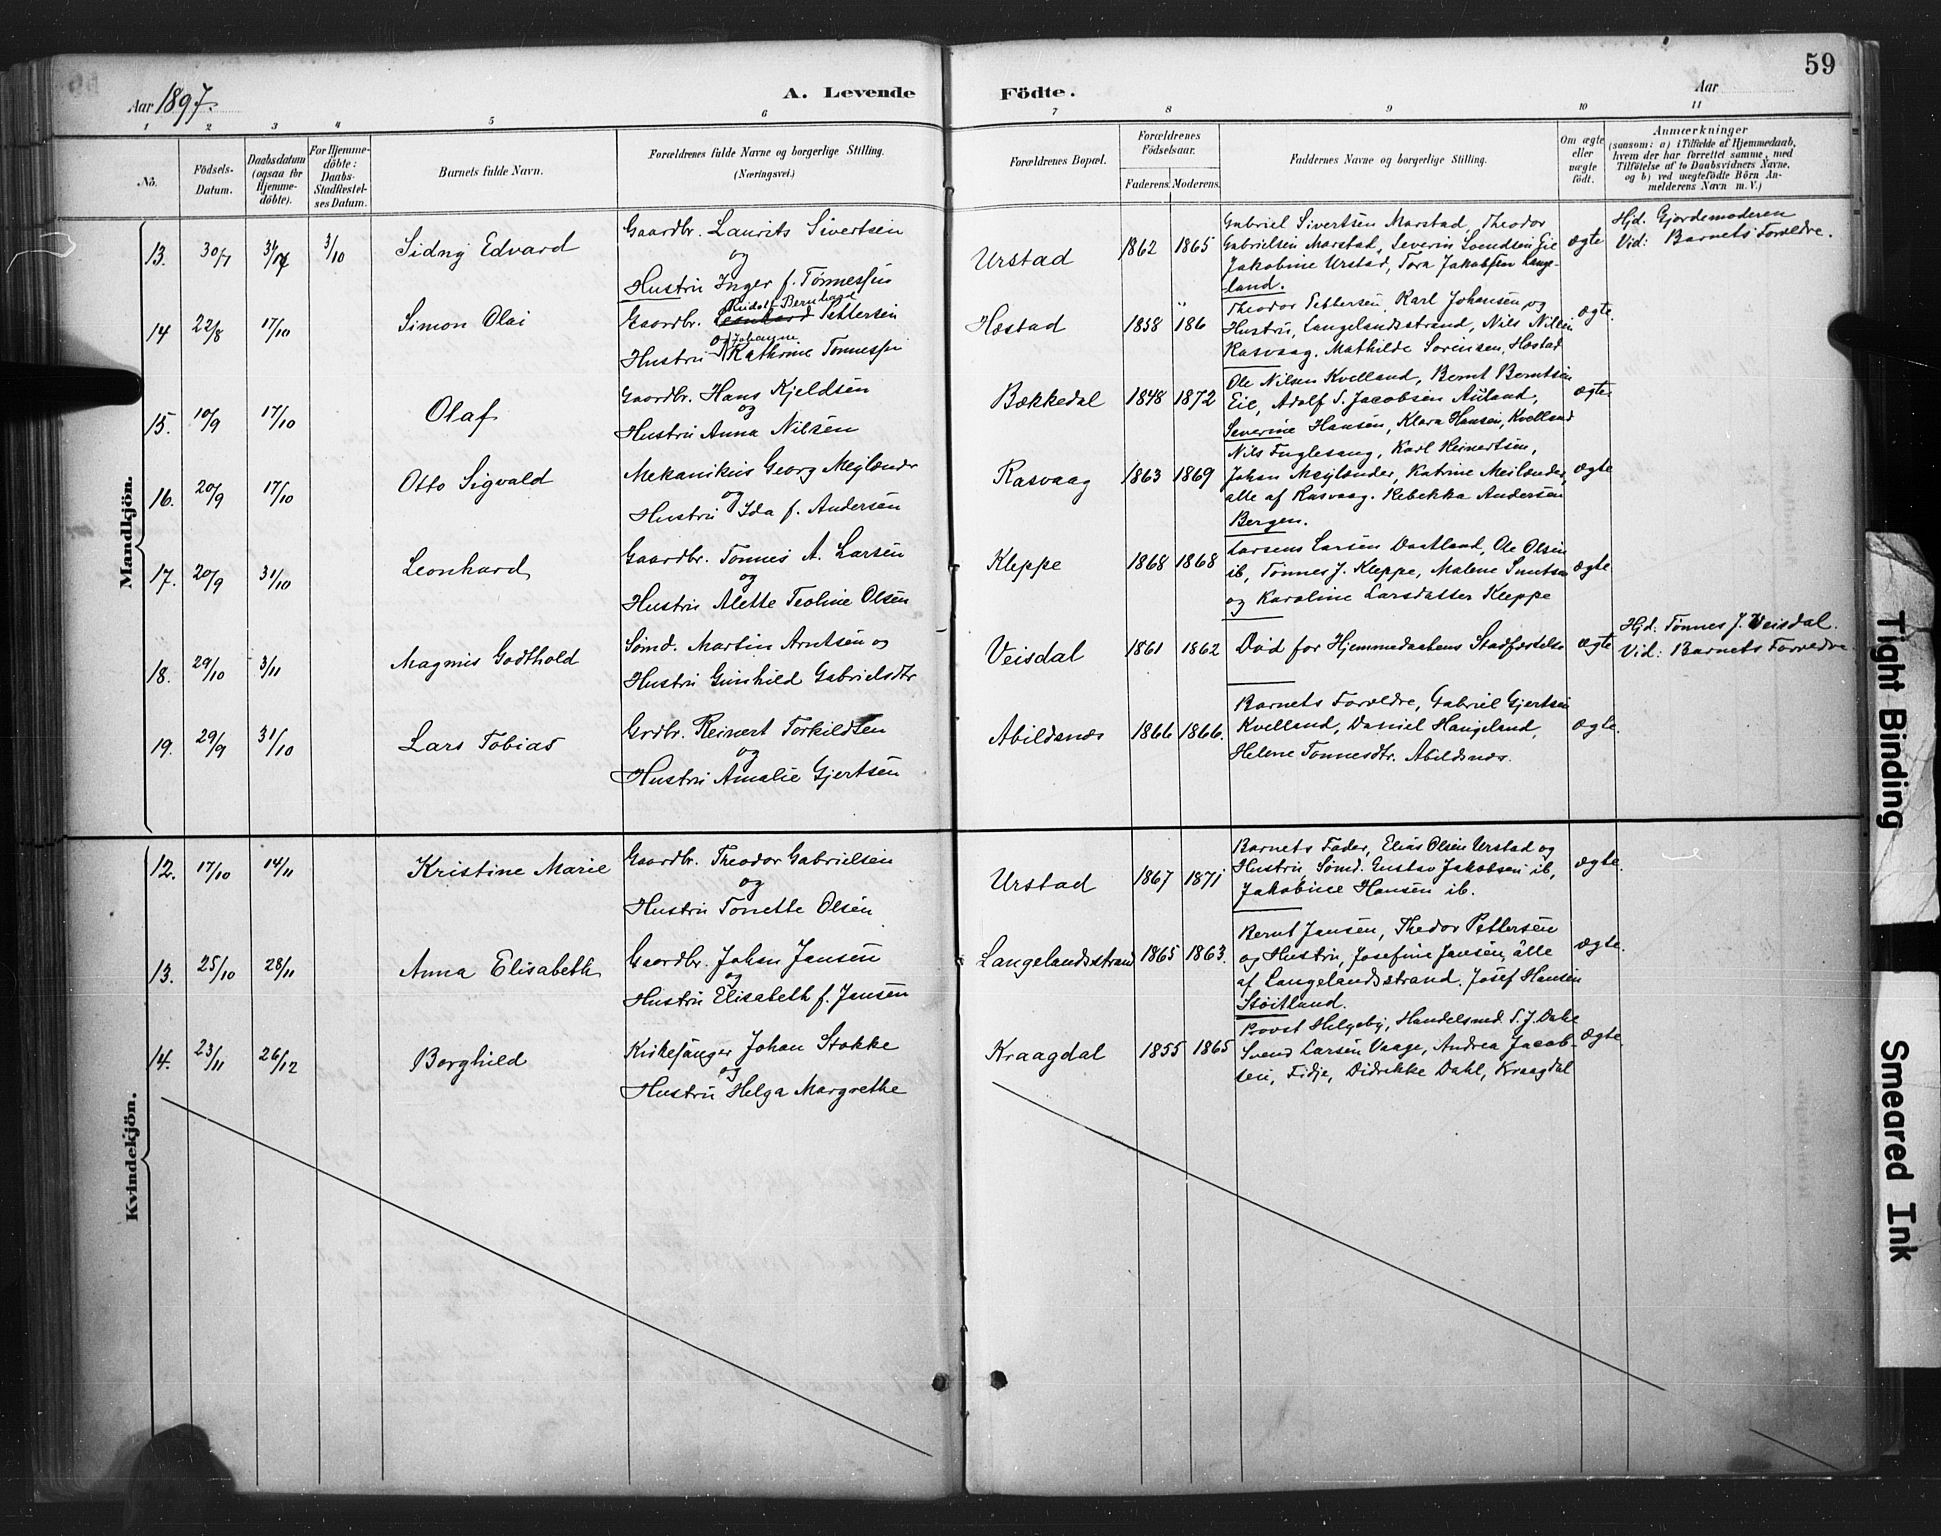 59
Aar 1897.
A. Levende Födte.
Aar
1 2 3 4 5 6 7 8 9 10 11
No.
Födsels-Datum.
Daabsdatum (ogsaa for Hjemmedöbte).
For Hjemmedöbte: Daabs-Stadfæstelses Datum.
Barnets fulde Navn.
Forældrenes fulde Navne og borgerlige Stilling.
(Næringsvei.)
Forældrenes Bopæl.
Forældrenes Födselsaar.
Faderens. Moderens.
Faddernes Navne og borgerlige Stilling.
Om ægte eller uægte födt.
Anmærkninger
(saasom: a) i Tilfælde af Hjemmedaab,
hvem der har forrettet samme, med
Tilföielse af to Daabsvidners Navne,
og b) ved uægtefödte Börn Anmelderens Navn m. V.)
Mandkjön.
13. 30/7 3/10 Sidny Edvard
Gaardbr. Laurits Sivertsen
og
Hustru Inger f. Tønnessen
Urstad 1862 1865
Gabriel Sivertsen Marstad, Theodor
Gabrielsen Marstad, Severin Svendsen Eie
Jakobine Urstad, Tora Jakobsen Lange-
land.
ægte
Hjd. Gjordemoderen
Vid: Barnets Forældre.
14 22/8 17/10 Simon Olai
Gaardbr. Rudolf Bernhard Pettersen
og Johanne
Hustru Kathrine Tønnessen
Hæstad 1858 186
Theodor Pettersen, Karl Johansen og
Hustru, Langelandsstrand, Nils Nilsen
Rasvaag. Mathilde Sørensen, Hæstad
ægte.
15. 10/9 17/10 Olaf
Gaardbr. Hans Kjeldsen
og
Hustru Anna Nilsen
Bækkedal 1848 1872
Ole Nilsen Kvelland, Bernt Berntsen
Eie, Adolf S. Jacobsen Auland,
Severine Hansen, Klara Hansen, Kvelland
ægte
16. 20/9 17/10 Otto Sigvald
Mekanikus Georg Meylænder
og
Hustru Ida f. Andersen
Rasvaag 1863 1869
Nils Fuglesang, Karl Reinertsen,
Johan Meylænder, Katrine Meilænder,
alle af Rasvaag. Rebekka Andersen
Bergen.
ægte
17. 20/9 31/10 Leonhard
Gaardbr. Tønnes A. Larsen
og
Hustru Alette Teoline Olsen
Kleppe 1868 1868
Larsens Larsen Daatland, Ole Olsen
ib, Tønnes J. Kleppe, Malene
og Karoline Larsdatter Kleppe
ægte
18. 29/10 3/11 Magnus Godthold
Sømd. Martin Arntsen og
Hustru Gunhild Gabrielsdtr
Veisdal 1861 1862
Død før Hjemmedaabens Stadfæstelse
ægte
Hjd: Tønnes J. Veisdal.
Vid: Barnets Forældre.
19. 29/9 31/10 Lars Tobias
Grdbr. Reinert Torkildsen
og
Hustru Amalie Gjertsen
Abildsnæs 1866 1866.
Barnets Forældre, Gabriel Gjertsen
Kvelland, Daniel Haugeland,
Helene Tønnesdtr. Abildsnæs.
ægte.
Kvindekjön.
12. 17/10 14/11 Kristine Marie
Gaardbr. Theodor Gabrielsen
og
Hustru Tonette Olsen
Urstad 1867 1871
Barnets Fader, Elias Olsen Urstad og
Hustru, Sømd. Gustav Jakobsen ib,
Jakobine Hansen ib.
ægte.
13. 25/10 28/11 Anna Elisabeth
Gaardbr. Johan Jansen
og
Hustru Elisabeth f. Jansen
Langelandsstrand 1865 1863.
Bernt Jansen, Thedor Pettersen
og Hustru, Josefine Jansen, alle
af Langelandsstrand. Josef Hansen
Støitland.
ægte.
14. 23/11 26/12 Borghild
Kirkesanger Johan Stokke
og
Hustru Helga Margrethe
Kraagdal 1855 1865
Provst Helgeby, Handelsmd. S. J. Dahl
Svend Larsen Vaage, Andrea Jacob-
sen, Fidje, Didrikke Dahl, Kraagdal
ægte.
Tight Binding
Smeared Ink